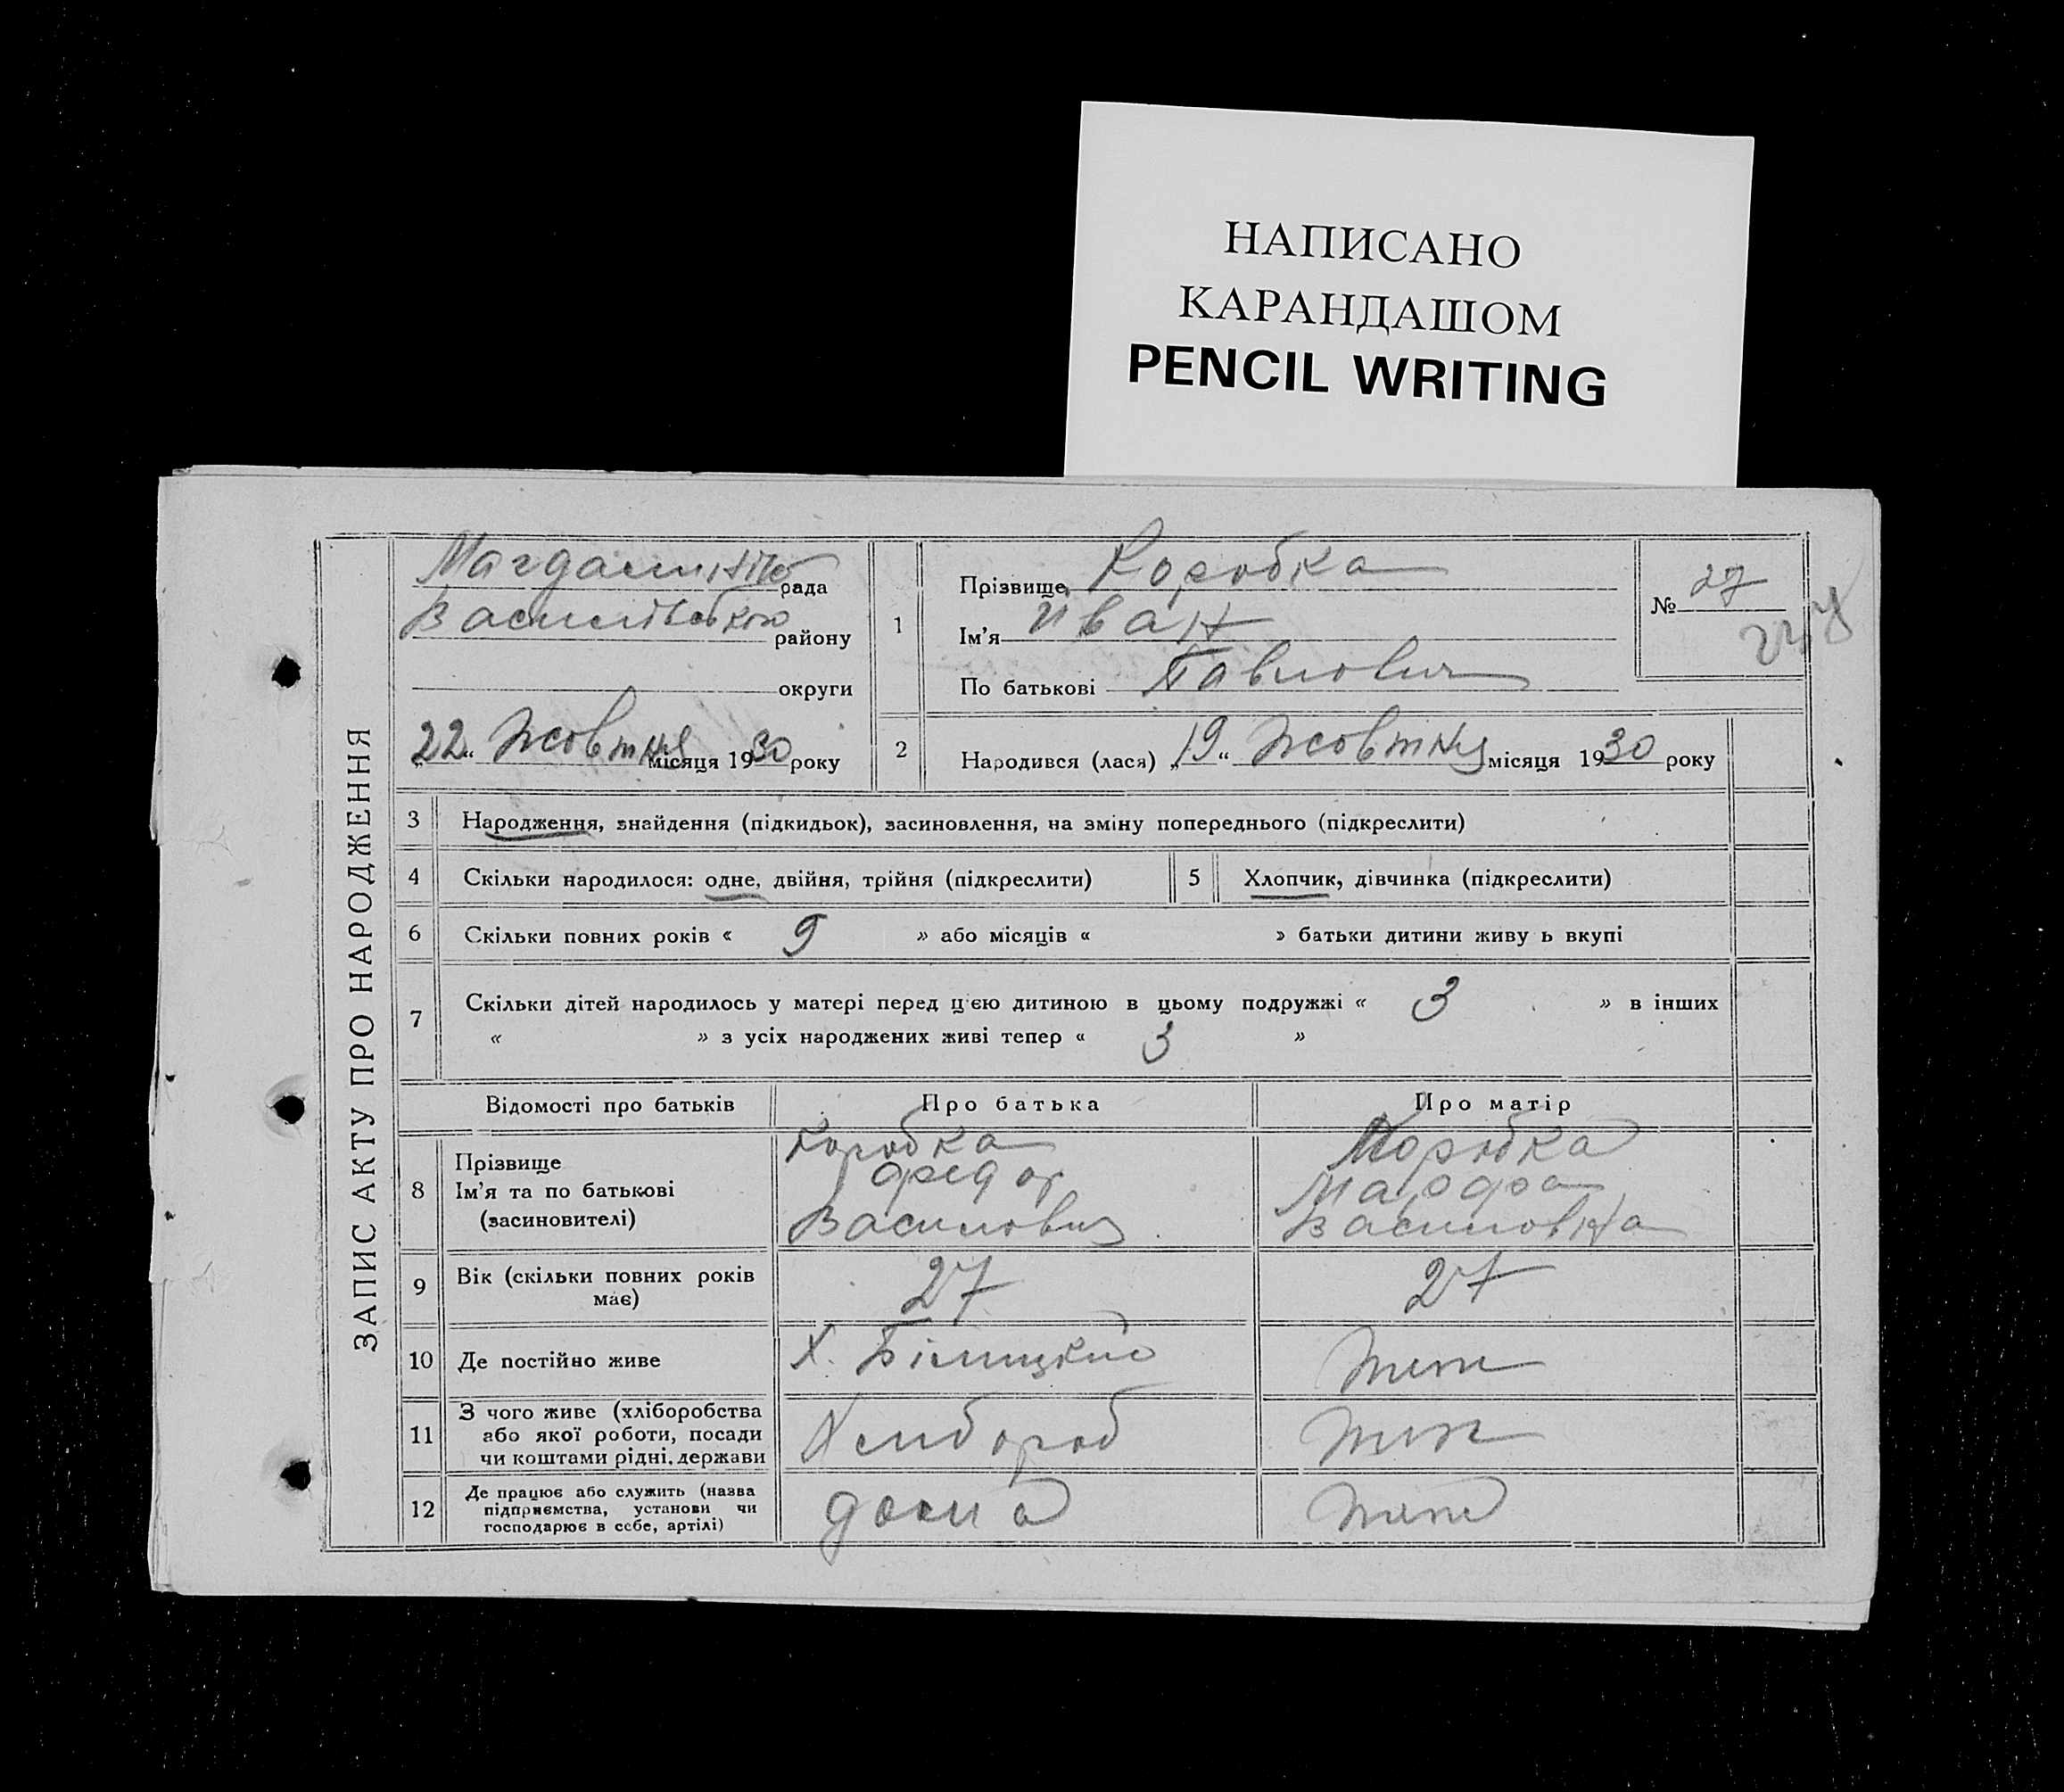 НАПИСАНО
КАРАНДАШОМ
PENCIL WRITING
ЗАПИС АКТУ ПРО НАРОДЖЕННЯ
рада
Василівського району
округи
„22“ Жовтня місяця 1930 року
1
Прізвище Коробка
Ім'я Иван
По батькові Павлович
№ 27
2 Народився (лася) „19“ Жовтня місяця 1930 року
3 Народження, знайдення (підкидьок), засиновлення, на зміну попереднього (підкреслити)
4 Скільки народилося: одне, двійня, трійня (підкреслити) 5 Хлопчик, дівчинка (підкреслити)
6 Скільки повних років « 9 » або місяців « » батьки дитини живу ь вкупі
7 Скільки дітей народилось у матері перед цією дитиною в цьому подружжі « 3 » в інших
« » з усіх народжених живі тепер « 3 »
Відомості про батьків Про батька Про матір
Коробка Коробка
Прізвище
8 Ім'я та по батькові Федор Марфа
(засиновителі) Василович Василовна
9 Вік (скільки повних років 27 27
має)
10 Де постійно живе Х. Білицкий теж
З чого живе (хліборобства
11 або якої роботи, посади Хлибороб теж
чи коштами рідні, держави
Де працює або служить (назва
12 підприємства, установи чи дома теж
господарює в себе, артілі)